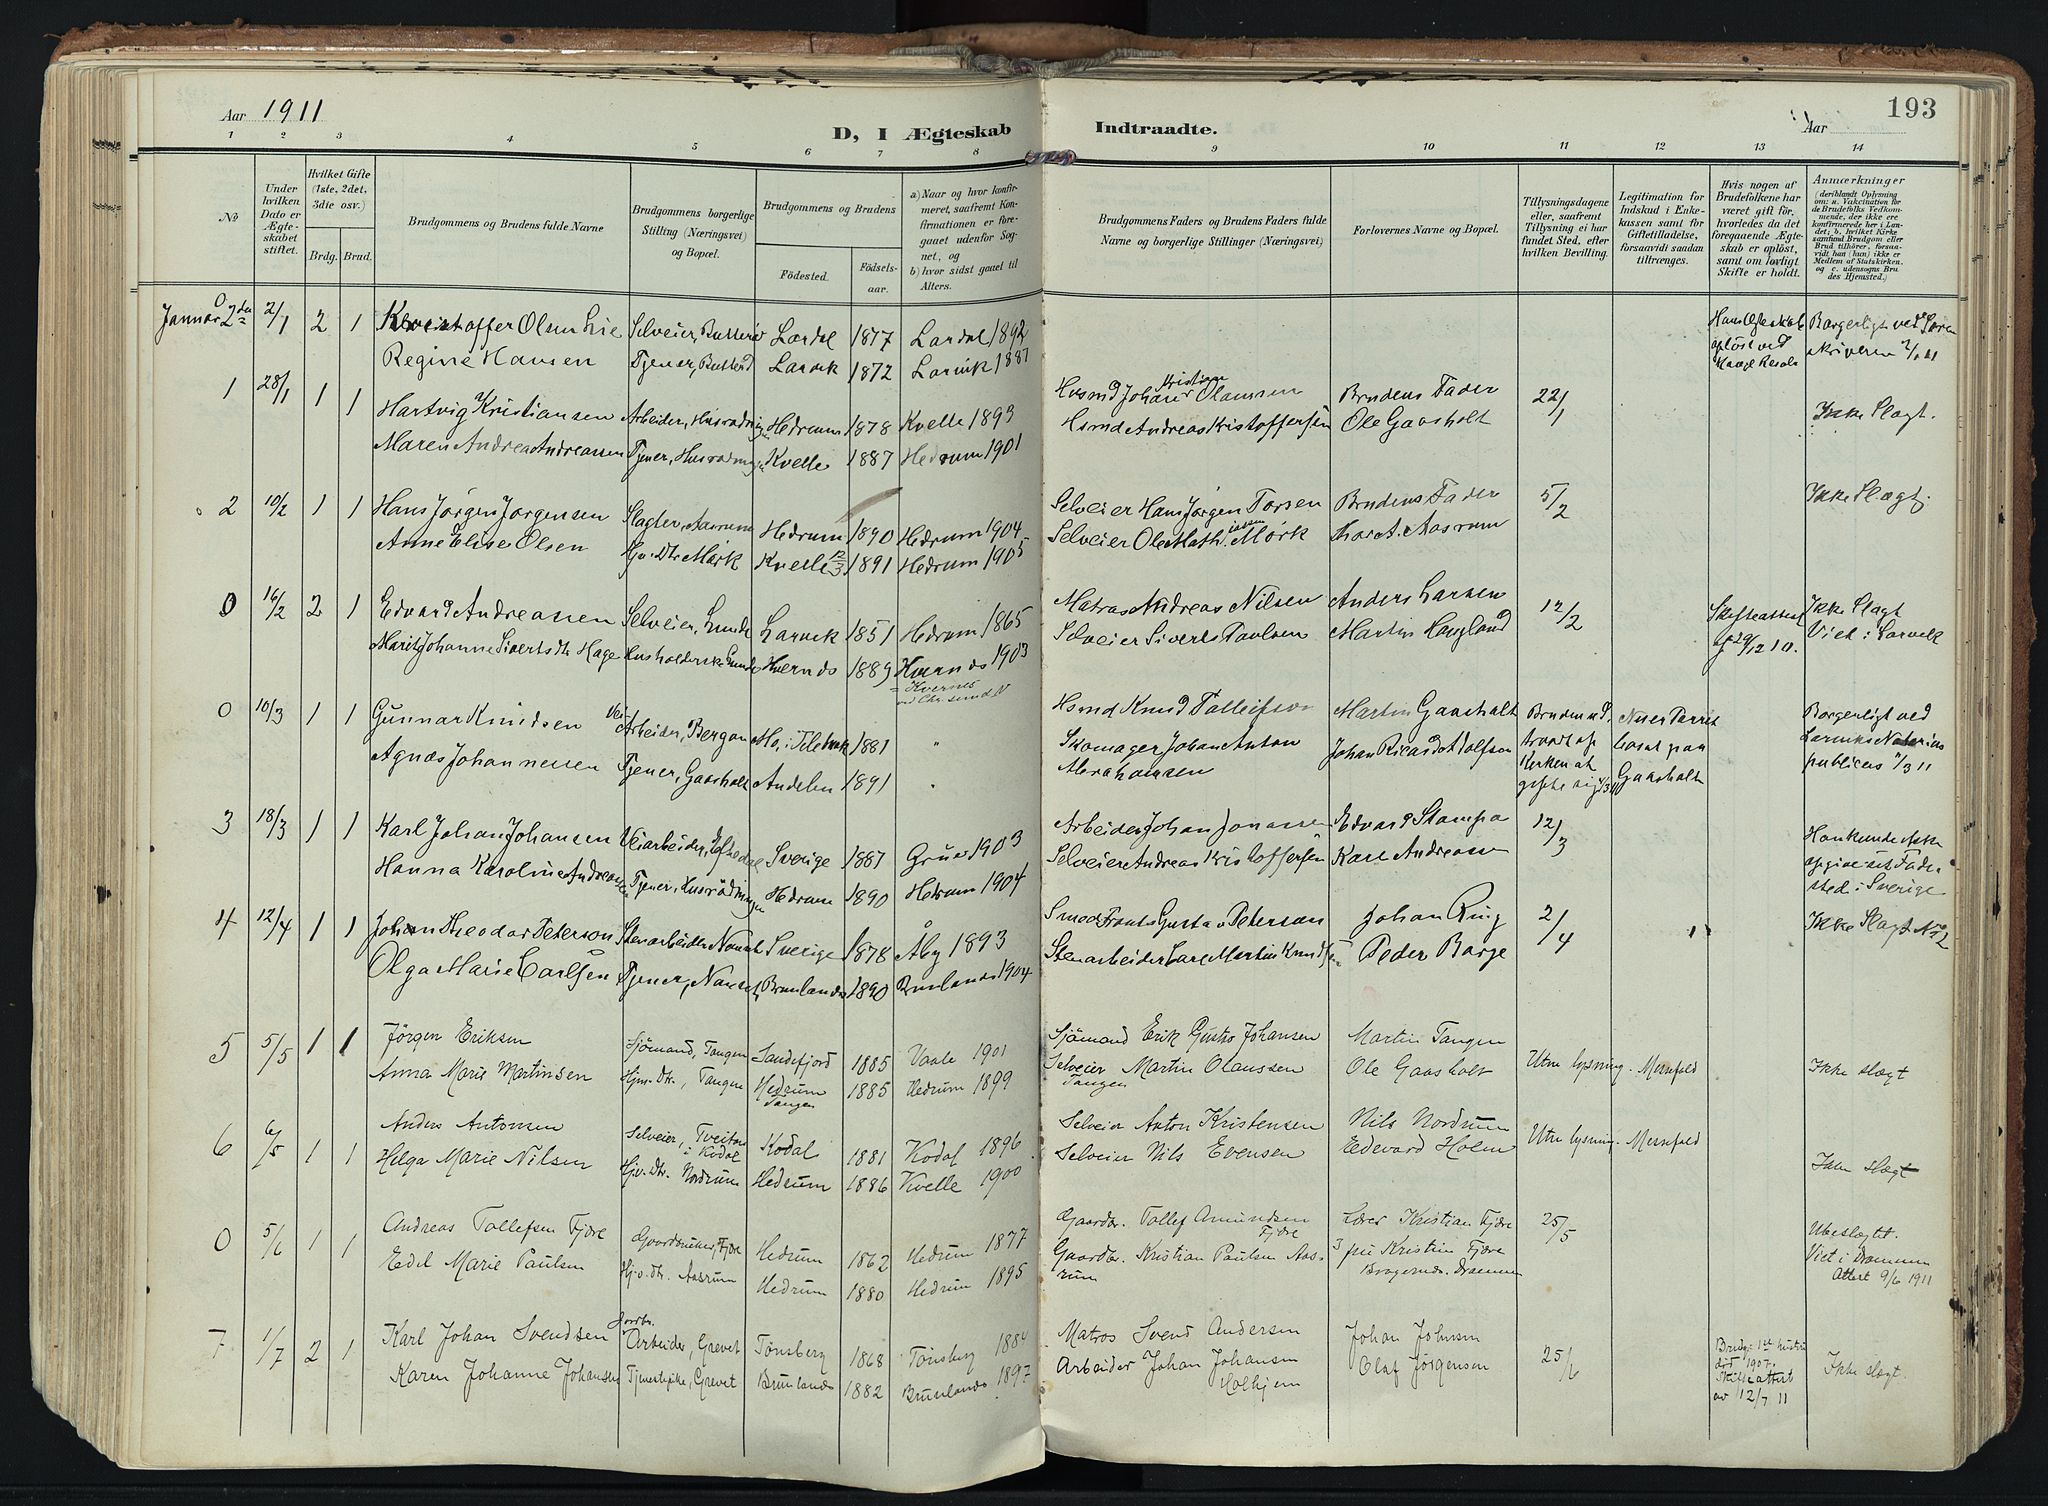 Aar 1911
D, I Ægteskab Indtraadte.
Aar
193
1 2 3 4 5 6 7 8 9 10 11 12 13 14
No
Under hvilken Dato er Ægteskabet stiftet.
Hvilket Gifte (1ste, 2det, 3die osv.)
Brdg. Brud.
Brudgommens og Brudens fulde Navne
Brudgommens borgerlige Stilling (Næringsvei) og Bopæl.
Brudgommens og Brudens
Fødested.
Fødselsaar.
a) Naar og hvor konfirmeret, saafremt Konfirmationen er foregaaet udenfor Sognet, og
b) hvor sidst gaaet til Alters.
Brudgommens Faders og Brudens Faders fulde Navne og borgerlige Stillinger (Næringsvei)
Forlovernes Navne og Bopæl.
Tillysningsdagene eller, saafremt Tillysning ei har fundet Sted, efter hvilken Bevilling.
Legitimation for Indskud i Enkekassen samt for Giftetilladelse, forsaavidt saadan tiltrænges.
Hvis nogen af Brudefolkene har været gift før, hvorledes da det foregaaende Ægteskab er opløst, samt om lovligt Skifte er holdt.
Anmærkninger
Januar 2den 0 2/1 2 1 Kristoffer Olsen Lie Selveier, Lardal 1877 Lardal 1892 Hans Ægteskab opløst ved Borgerligt ved Sorenskriveren 2/1 11
Regine Hansen Tjener, Larvik 1872 Larvik 1887
1 28/1 1 1 Hartvig Kristiansen Arbeider, Husrødningen Hedrum 1878 Kvelle 1893 Husmd Johan Kristian Olaussen Brudens Fader 22/1 Ikke Slægt.
Maren Andrea Andreassen Tjener, Husrødningen Kvelle 1887 Hedrum 1901 Hsmd Andreas Kristoffersen Ole Gaasholt
2 10/2 1 1 Hans Jørgen Jørgensen Slagter, Aasrum Hedrum 1890 Hedrum 1904 Selveier Hans Jørgen Torsen Brudens Fader 5/2 Ikke Slægt.
Anne Elise Olsen Hjv. Dtr Mørk Kvelle 12/3 1891 Hedrum 1905 Selveier Ole Mathiassen Mørk A. Aasrum
0 16/2 2 1 Edvard Andreassen Selveier, Lunde Larvik 1851 Hedrum 1865 Matros Andreas Nilsen Anders Larsen 12/2 Skifteattest 29/12 10. Ikke Slægt Viet i Larvik
Marit Johanne Siverts dtr Hage Husholderske Lunde Kvernes 1889 Kvernes 1903 Selveier Siverts Paulsen Martin Haugland
= Kvernes ved Chr.sund N
0 10/3 1 1 Gunnar Knudsen Veiarbeider, Bergan Mo i Telemark 1881 " Hsmd Knud Tolleifson Martin Gaasholt Bruden udtraadt af Kirken at gifte sig Gaasholt Borgerligt ved Larviks Notarius publicus
Agnes Johannessen Tjener, Gaasholt 1891 " Skomager Johan Anton Abrahamsen Johan Rikard Adolfsen
3 18/3 1 1 Karl Johan Johansen Veiarbeider, Sverige 1887 Grue 1903 Arbeider Johan Jonassen Edvard Stampa 12/3 Han kunde ikke opgive sit Fødested i Sverige
Hanna Karoline Andreassen Tjener, Husrødningen Hedrum 1890 Hedrum 1904 Selveier Andreas Kristoffersen Karl Andreassen
4 12/4 1 1 Johan Theodor Peterson Stenarbeider Sverige 1878 Åby 1893 Smed Frants Gustav Peterson Johan Ring 2/4 Ikke Slægt
Olga Marie Carlsen Tjener, Brunlanes 1890 Brunlanes 1904 Stenarbeider Carl Martin Knudsen Peder Borge
5 5/5 1 1 Jørgen Eriksen Sjømand, Tangen Sandefjord 1885 Vaale 1901 Sjømand Erik Gustav Johansen Martin Tangen Uten lysning. Messefald Ikke slægt
Anna Marie Martinsen Hjv. Dtr., Tangen Hedrum Tangen 1885 Hedrum 1899 Selveier Martin Olaussen Tangen Ole Gaasholt
6 6/5 1 1 Anders Antonsen Selveier, Tveitan i Kodal Kodal 1881 Kodal 1896 Selveier Anton Kristensen Nils Nordrum Uten lysning. Messefald Ikke slægt
Helga Marie Nilsen Hjv. Dtr. Nordrum Hedrum 1886 Kvelle 1900 Selveier Nils Evensen Edevard Holm
0 5/6 1 1 Andreas Tollefsen Fjære Gaardbruker, Fjære Hedrum 1862 Hedrum 1877 Gaardbr. Tollef Amundsen Fjære Lærer Kristian Fjære 25/5 Ubeslægtet. Viet i Drammen Attest 9/6 1911
Edel Marie Paulsen Hjv. dtr. Aasrum Hedrum 1880 Hedrum 1895 Gaardbr. Kristian Paulsen Aasrum Kristin Fjære Bragernes, Drammen
7 1/7 2 1 Karl Johan Svendsen Jordbr. Arbeider, Grevet Tønsberg 1868 Tønsberg 1884 Matros Svend Andersen Johan Johnsen 25/6 Brudg. 1st hustru død 1907. Skifteattest av 12/7 11 Ikke slægt.
Karen Johanne Johansen Tjenestepike, Grevet Brunlanes 1882 Brunlanes 1897 Arbeider Johan Johansen Holhjem Olaf Jørgensen